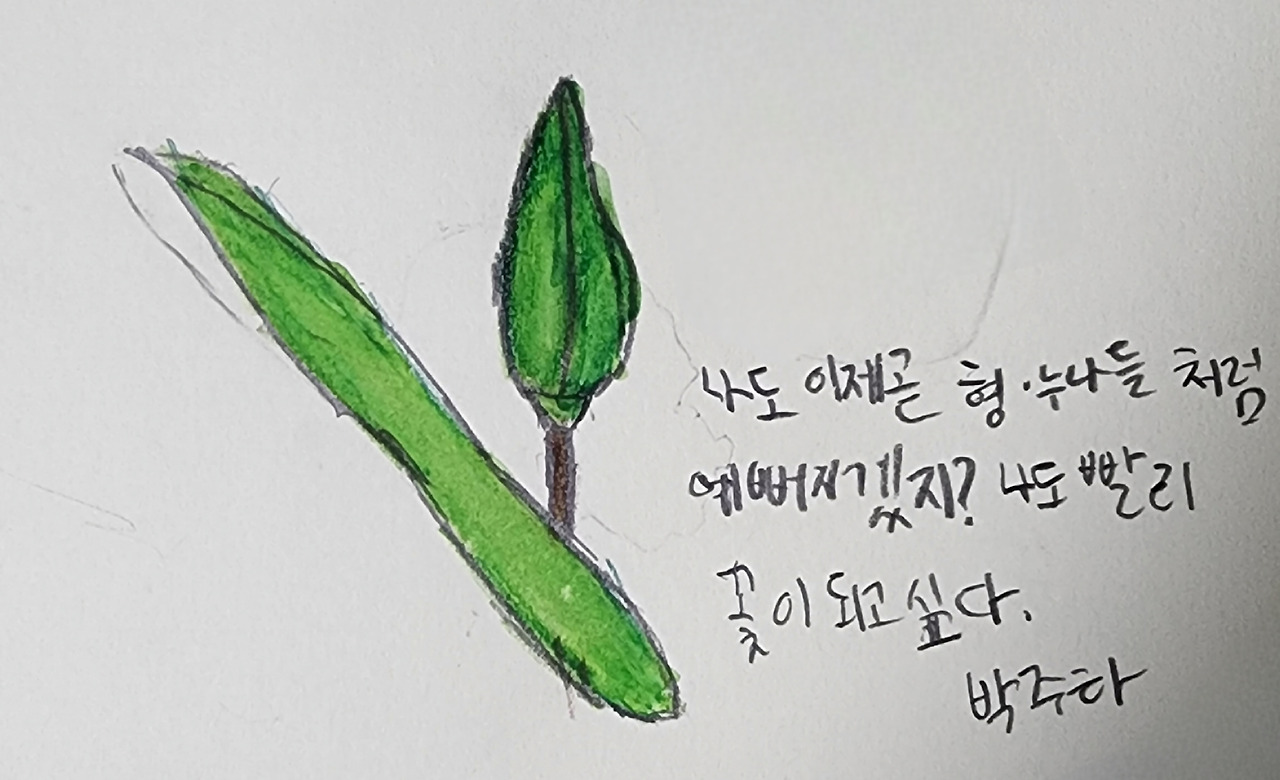 나도 이제곧 형·누나들 처럼
예뻐지겠지? 나도 빨리
꽃이 되고싶다.
박주하